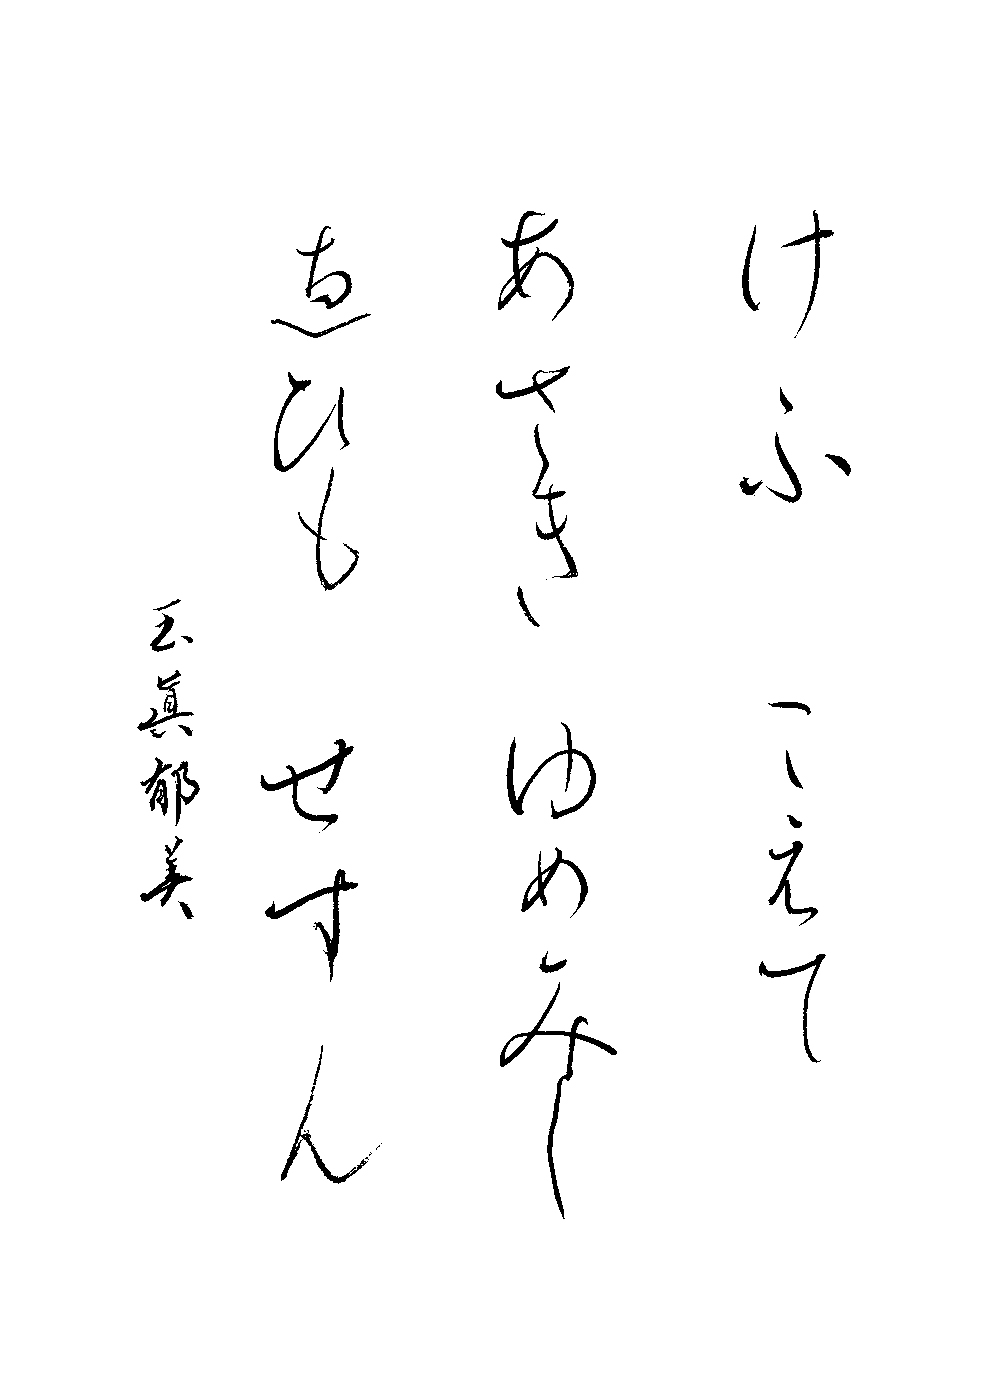 けふ こえて
あさき ゆめみし
ゑひも せすん
玉眞郁美